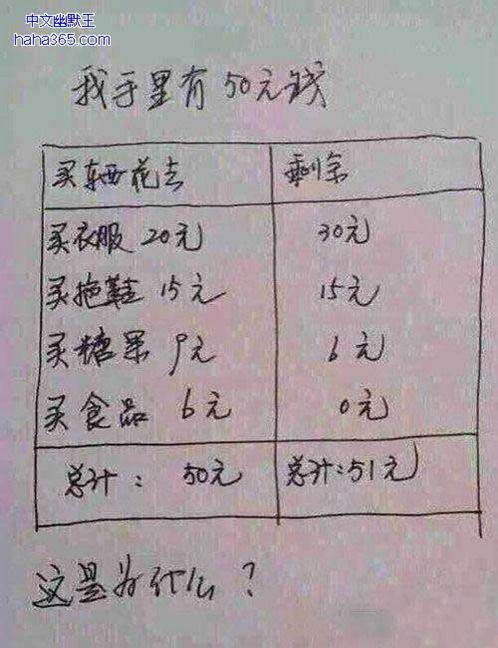 中文幽默王
haha365.com
我手里有50元钱
买东西花去 剩余
买衣服 20元 30元
买拖鞋 15元 15元
买糖果 9元 6元
买食品 6元 0元
总计: 50元 总计:51元
这是为什么?